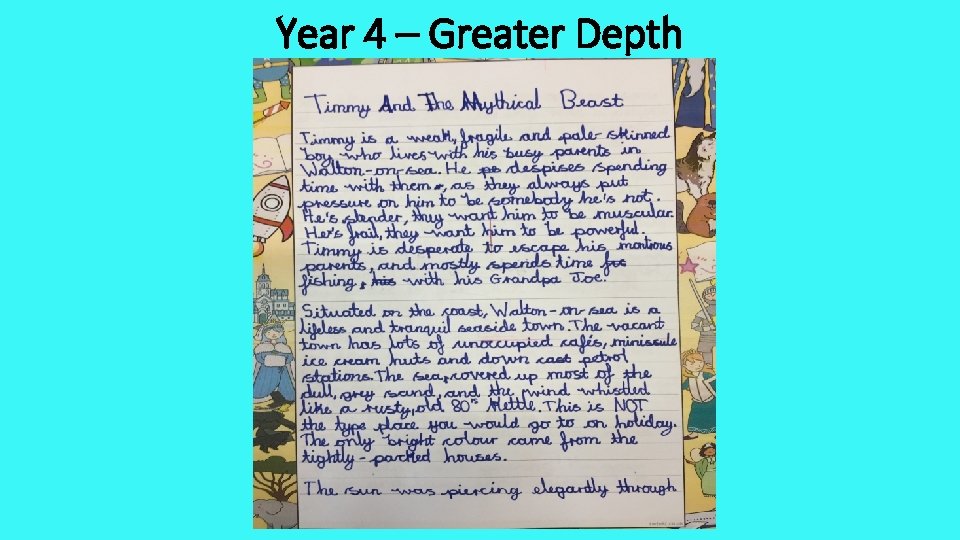 Year 4 – Greater Depth
Timmy And The Mythical Beast
Timmy is a weak, fragile and pale-skinned
boy who lives with his busy parents in
Walton-on-sea. He despises spending
time with them, as they always put
pressure on him to be somebody he's not.
He's slender, they want him to be muscular.
He's frail, they want him to be powerful.
Timmy is desperate to escape his
parents, and mostly spends time
fishing, with his Grandpa Joe.
Situated on the coast, Walton-on-sea is a
lifeless and tranquil seaside town. The vacant
town has lots of unoccupied cafés, minissule
ice cream huts and down cast petrol
stations. The sea, covered up most of the
dull, grey sand, and the wind whistled
like a rusty, old 80's kettle. This is NOT
the type place you would go to on holiday.
The only bright colour came from the
tightly-packed houses.
The sun was piercing elegantly through